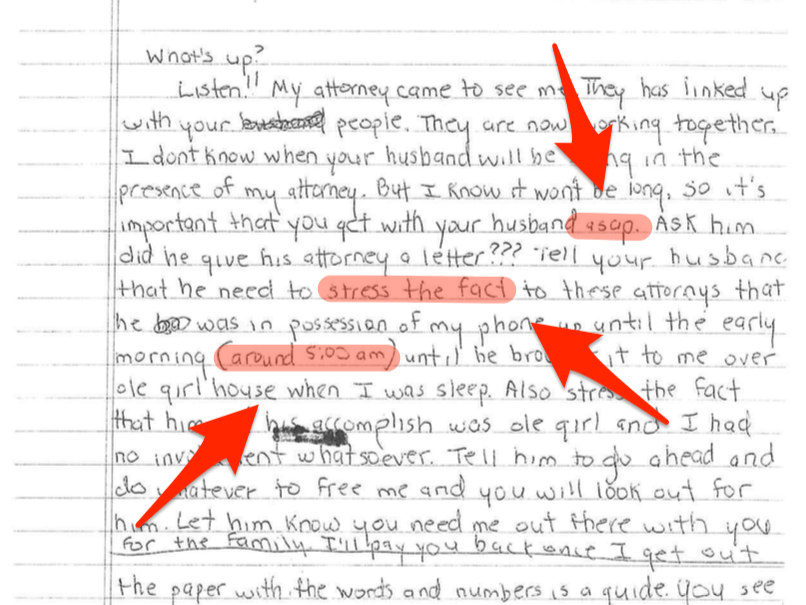 What's up?
Listen!! My attorney came to see me. They has linked up
with your people. They are now working together.
I dont know when your husband will be in the
presence of my attorney. But I know it won't be long, so it's
important that you get with your husband asap. Ask him
did he give his attorney a letter??? Tell your husband
that he need to stress the fact to these attornys that
he was in possession of my phone up until the early
morning (around 5:00 am) until he it to me over
ole girl house when I was sleep. Also stress the fact
that him his accomplish was ole girl and I had
no whatsoever. Tell him to go ahead and
do whatever to free me and you will look out for
him. Let him know you need me out there with you
for the family. I'll pay you back once I get out
the paper with the words and numbers is a guide. You see